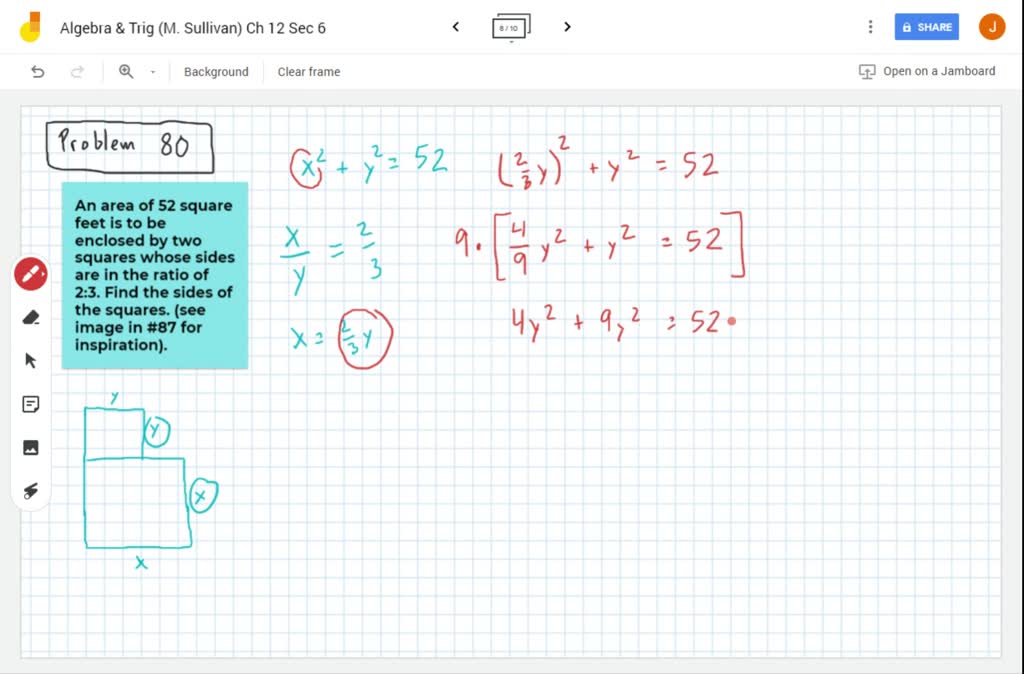 Algebra & Trig (M. Sullivan) Ch 12 Sec 6
8 / 10
SHARE
J
Background
Clear frame
Open on a Jamboard
Problem 80
An area of 52 square
feet is to be
enclosed by two
squares whose sides
are in the ratio of
2:3. Find the sides of
the squares. (see
image in #87 for
inspiration).
x² + y² = 52
x/y = 2/3
x = 2/3 y
(2/3 y)² + y² = 52
9 · [4/9 y² + y² = 52]
4y² + 9y² = 52 •
y
y
x
x